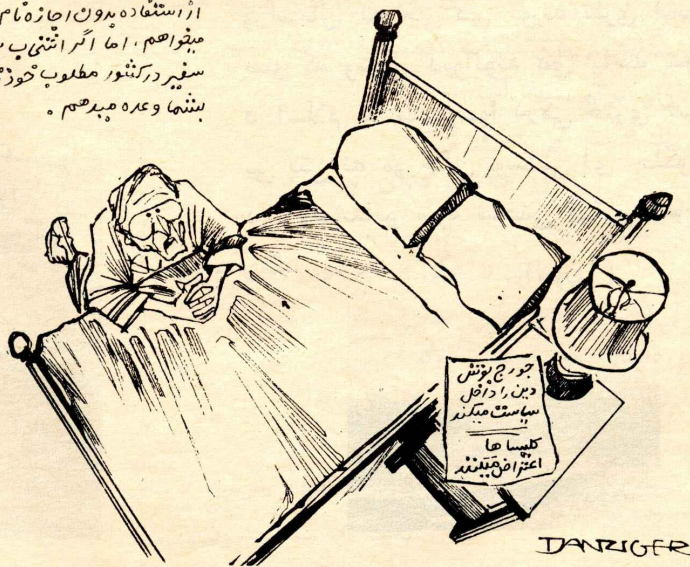 از استفاده بدون اجازه نام
میخواهم، اما اگر انتخاب
سفیر درکشور مطلوب خود
بشما وعده میدهم.
جورج بوش
دین را داخل
سیاست میکند
کلیسا ها
اعتراض میکنند
DANZIGER